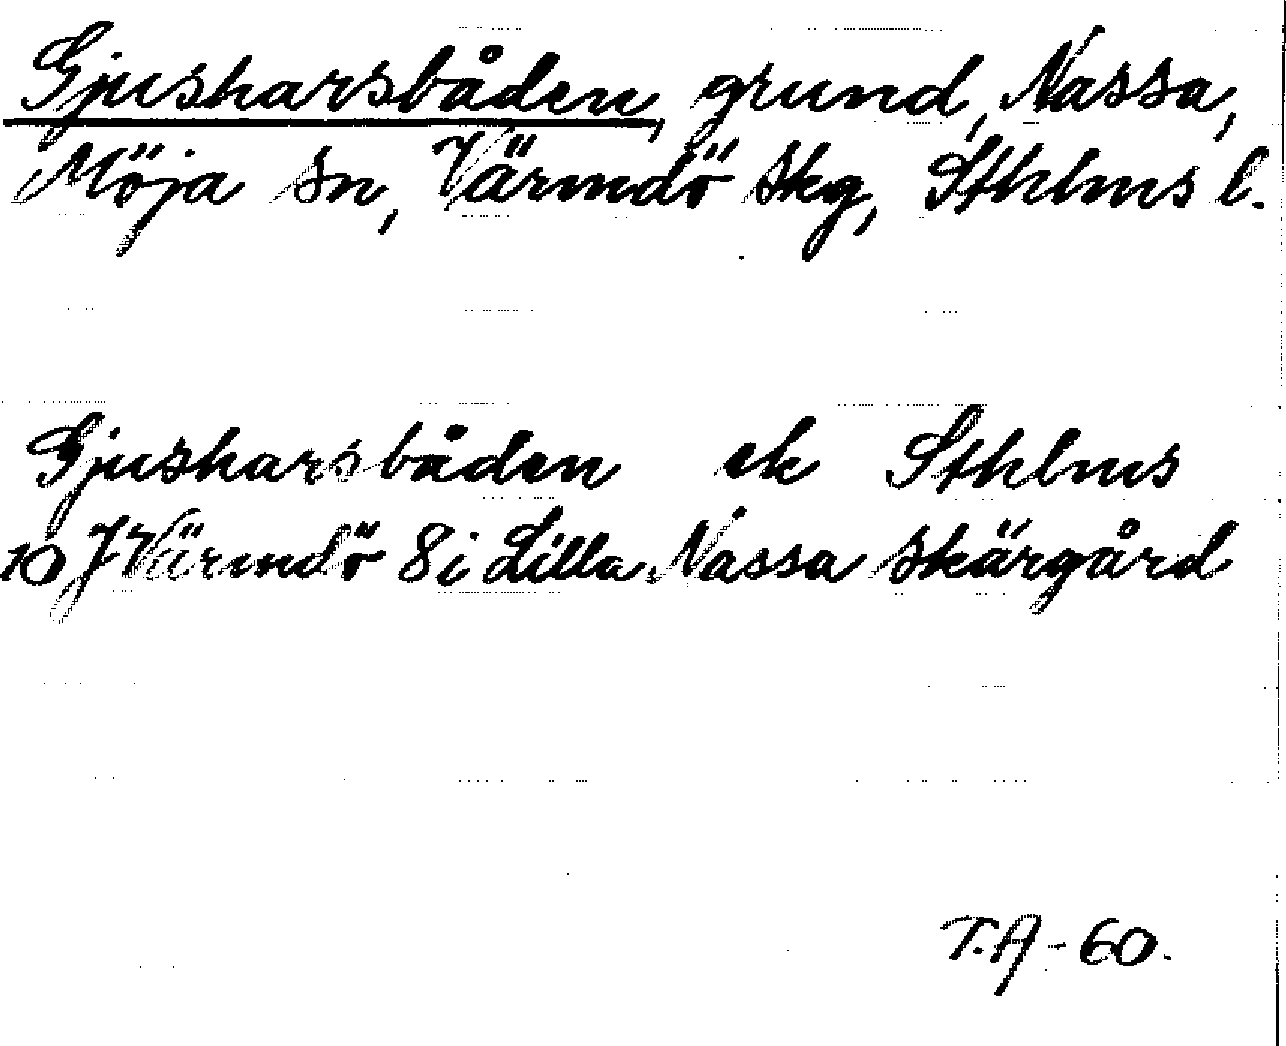 Gjusharsbåden, grund, Nassa,
Möja sn, Värmdö skg, Sthlms l.
Gjusharsbåden ek Sthlms
10 J Värmdö 8 i Lilla Nassa skärgård
T.A-60.